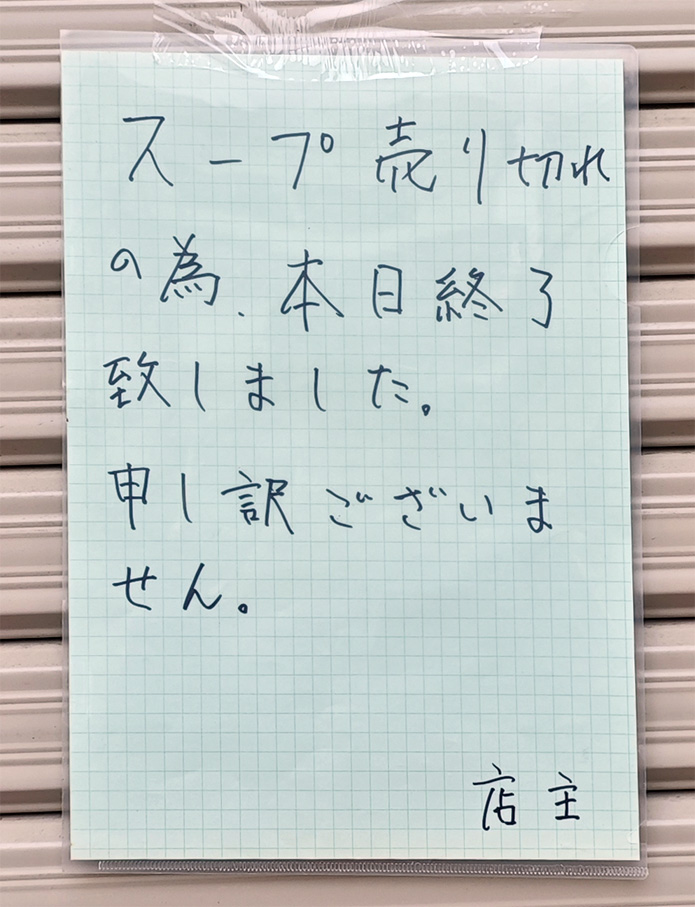 スープ売り切れ
の為、本日終了
致しました。
申し訳ございま
せん。
店主